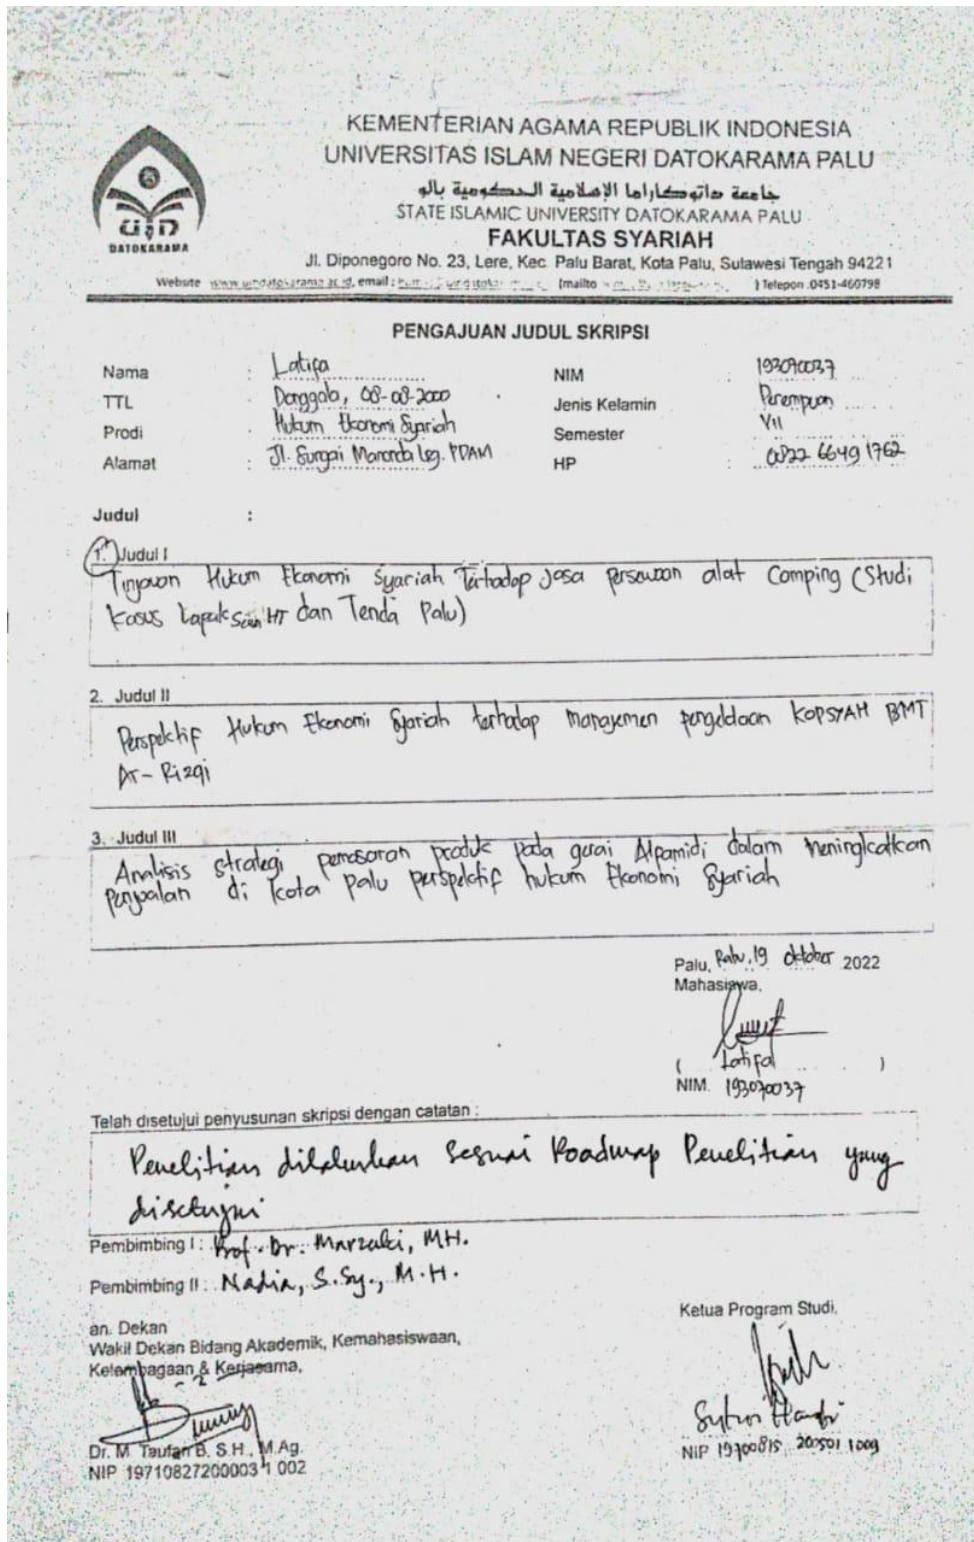 KEMENTERIAN AGAMA REPUBLIK INDONESIA
UNIVERSITAS ISLAM NEGERI DATOKARAMA PALU
جامعة داتوكاراما الإسلامية الحكومية بالو
STATE ISLAMIC UNIVERSITY DATOKARAMA PALU
FAKULTAS SYARIAH
UIN
DATOKARAMA
Jl. Diponegoro No. 23, Lere, Kec. Palu Barat, Kota Palu, Sulawesi Tengah 94221
Website www.uindatokarama.ac.id, email : (mailto ) Telepon :0451-460798
PENGAJUAN JUDUL SKRIPSI
Nama : Latifa NIM 193070037
TTL : Donggala, 08-08-2000 Jenis Kelamin Perempuan
Prodi : Hukum Ekonomi Syariah Semester VII
Alamat : Jl. Sungai Manonda Lrg. PDAM HP : 0822 6649 1762
Judul :
1. Judul I
Tinjauan Hukum Ekonomi Syariah Terhadap Jasa persewaan alat Camping (Studi
Kasus Lapak HT dan Tenda Palu)
2. Judul II
Perspektif Hukum Ekonomi Syariah terhadap manajemen pengelolaan KOPSYAH BMT
Ar-Rizqi
3. Judul III
Analisis strategi pemasaran produk pada gerai Alfamidi dalam meningkatkan
penjualan di kota palu perspektif hukum Ekonomi Syariah
Palu, Rabu, 19 oktober 2022
Mahasiswa,
( Latifa )
NIM. 193070037
Telah disetujui penyusunan skripsi dengan catatan :
Penelitian dilakukan sesuai Roadmap Penelitian yang
disetujui
Pembimbing I : Prof. Dr. Marzuki, MH.
Pembimbing II : Nadia, S.Sy., M.H.
an. Dekan
Wakil Dekan Bidang Akademik, Kemahasiswaan,
Kelembagaan & Kerjasama,
Dr. M. Taufan B, S.H., M.Ag.
NIP 19710827200003 1 002
Ketua Program Studi,
NIP 19700815 200501 1009